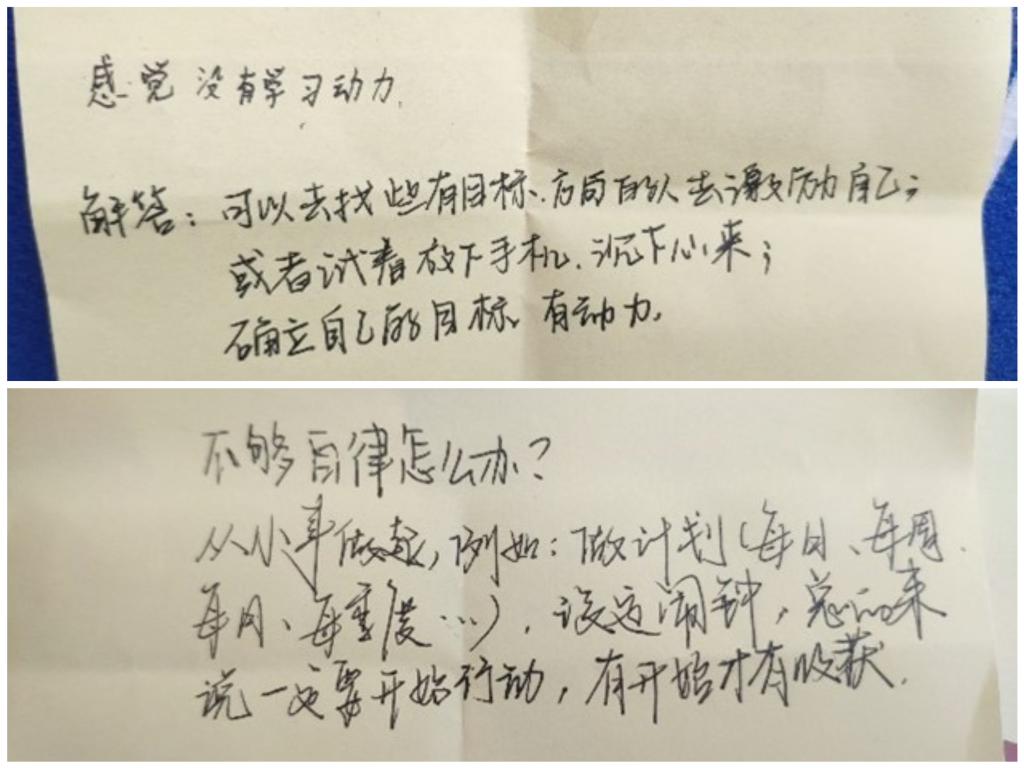 感觉没有学习动力.
解答：可以去找些有目标、方向的人去激励自己；
或者试着放下手机、沉下心来；
确立自己的目标、有动力.
不够自律怎么办？
从小事做起，例如：做计划（每日、每周、
每月、每季度…），设定闹钟，总的来
说一定要开始行动，有开始才有收获.